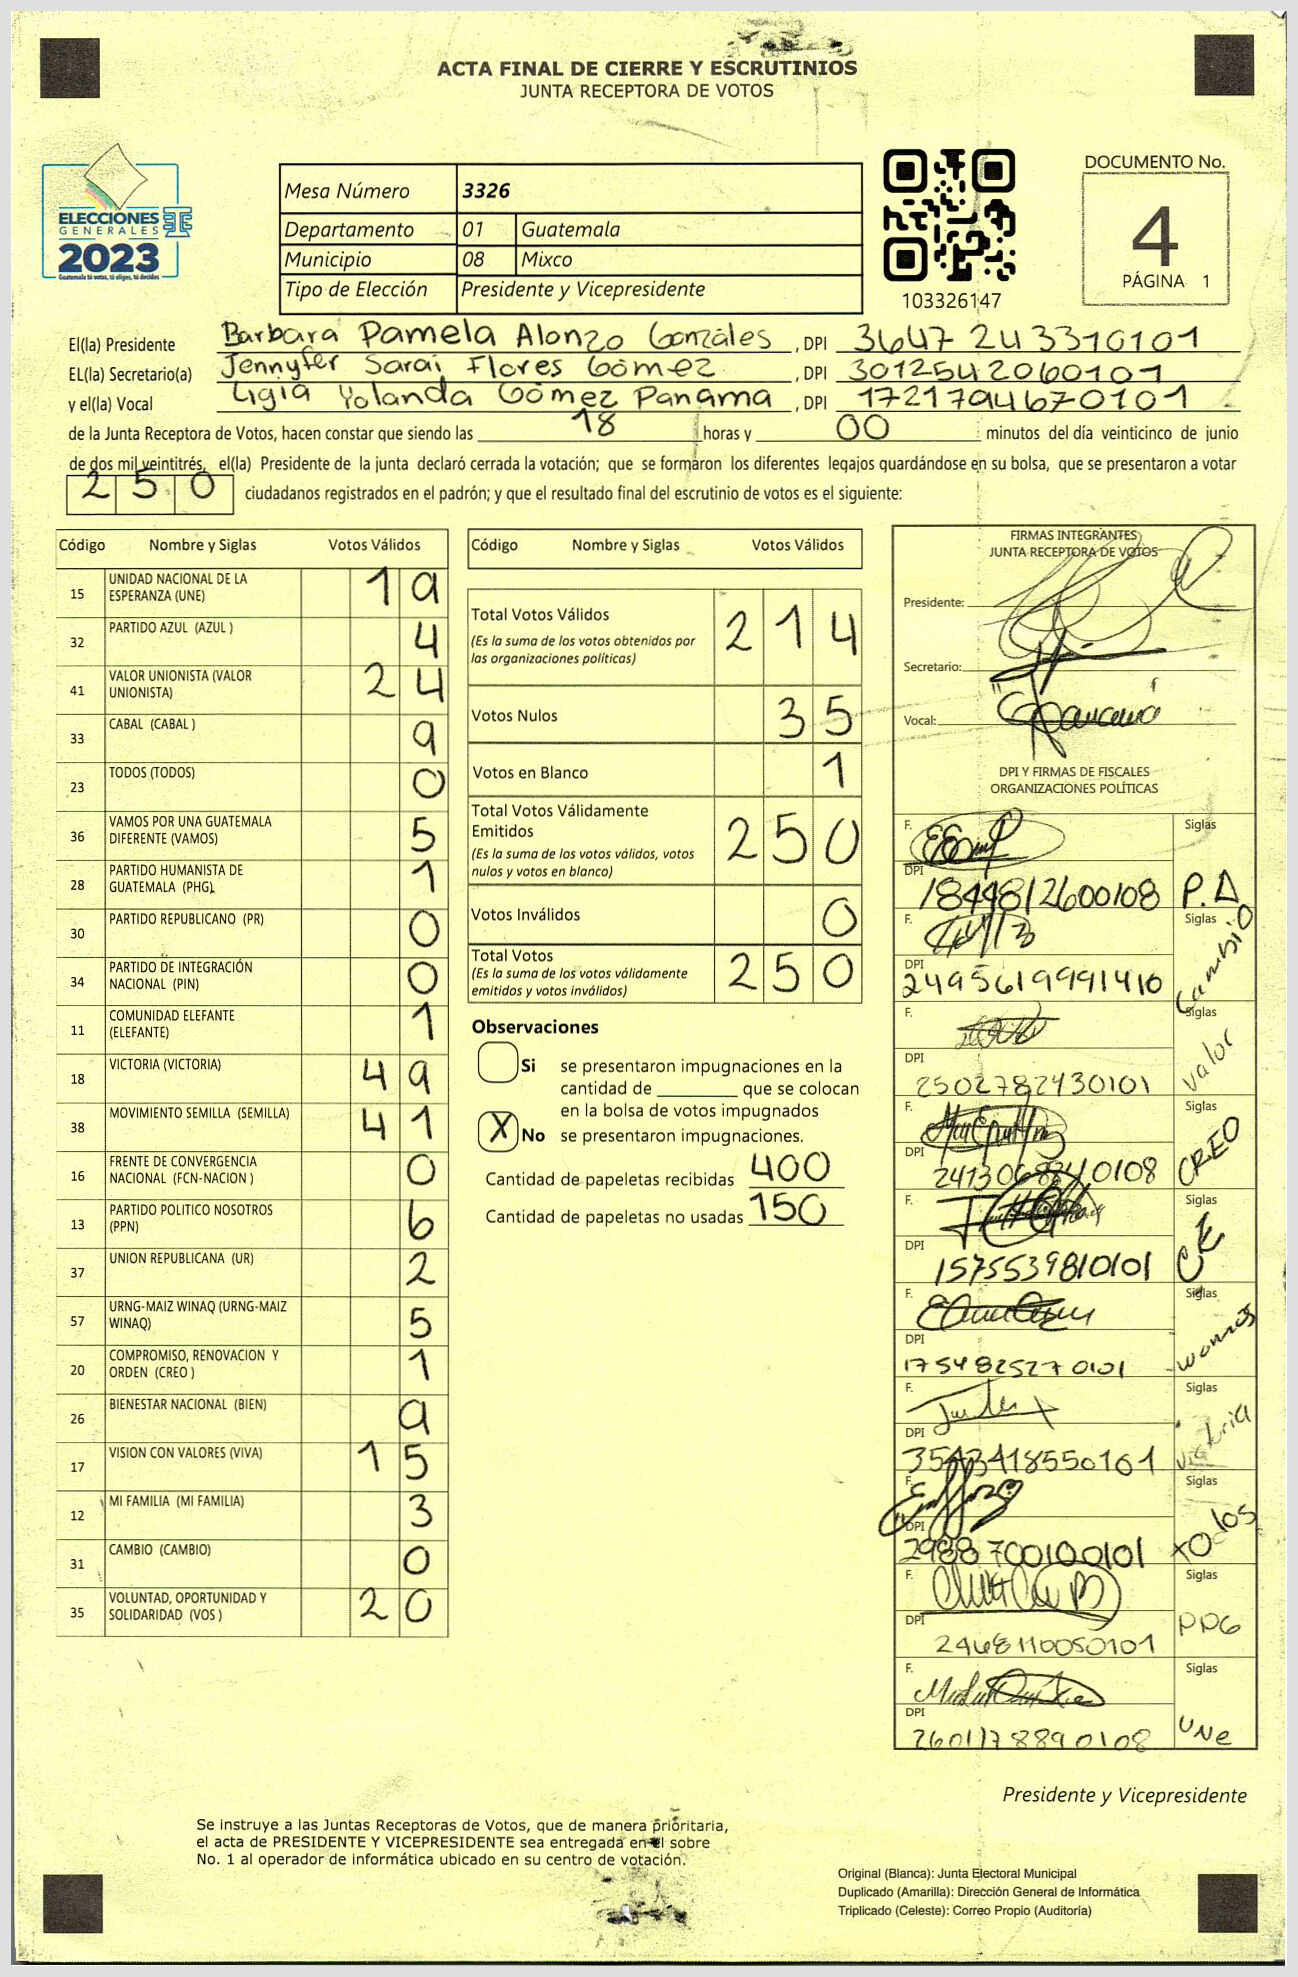 ACTA FINAL DE CIERRE Y ESCRUTINIOS
JUNTA RECEPTORA DE VOTOS
ELECCIONES
GENERALES
2023
Guatemala tú votas, tú eliges, tú decides
Mesa Número 3326
Departamento 01 Guatemala
Municipio 08 Mixco
Tipo de Elección Presidente y Vicepresidente
103326147
DOCUMENTO No.
4
PÁGINA 1
El(la) Presidente Barbara Pamela Alonzo Gonzáles, DPI 3647 243310101
EL(la) Secretario(a) Jennyfer Sarai Flores Gómez, DPI 3012542060101
y el(la) Vocal Ligia Yolanda Gómez Panama, DPI 1721794670101
de la Junta Receptora de Votos, hacen constar que siendo las 18 horas y 00 minutos del día veinticinco de junio
de dos mil veintitrés, el(la) Presidente de la junta declaró cerrada la votación; que se formaron los diferentes legajos guardándose en su bolsa, que se presentaron a votar
250 ciudadanos registrados en el padrón; y que el resultado final del escrutinio de votos es el siguiente:
Código Nombre y Siglas Votos Válidos
15 UNIDAD NACIONAL DE LA ESPERANZA (UNE) 19
32 PARTIDO AZUL (AZUL ) 4
41 VALOR UNIONISTA (VALOR UNIONISTA) 24
33 CABAL (CABAL ) 9
23 TODOS (TODOS) 0
36 VAMOS POR UNA GUATEMALA DIFERENTE (VAMOS) 5
28 PARTIDO HUMANISTA DE GUATEMALA (PHG) 1
30 PARTIDO REPUBLICANO (PR) 0
34 PARTIDO DE INTEGRACIÓN NACIONAL (PIN) 0
11 COMUNIDAD ELEFANTE (ELEFANTE) 1
18 VICTORIA (VICTORIA) 49
38 MOVIMIENTO SEMILLA (SEMILLA) 41
16 FRENTE DE CONVERGENCIA NACIONAL (FCN-NACION ) 0
13 PARTIDO POLITICO NOSOTROS (PPN) 6
37 UNION REPUBLICANA (UR) 2
57 URNG-MAIZ WINAQ (URNG-MAIZ WINAQ) 5
20 COMPROMISO, RENOVACION Y ORDEN (CREO ) 1
26 BIENESTAR NACIONAL (BIEN) 9
17 VISION CON VALORES (VIVA) 15
12 MI FAMILIA (MI FAMILIA) 3
31 CAMBIO (CAMBIO) 0
35 VOLUNTAD, OPORTUNIDAD Y SOLIDARIDAD (VOS ) 20
Código Nombre y Siglas Votos Válidos
Total Votos Válidos 214
(Es la suma de los votos obtenidos por
las organizaciones políticas)
Votos Nulos 35
Votos en Blanco 1
Total Votos Válidamente
Emitidos 250
(Es la suma de los votos válidos, votos
nulos y votos en blanco)
Votos Inválidos 0
Total Votos 250
(Es la suma de los votos válidamente
emitidos y votos inválidos)
Observaciones
Si se presentaron impugnaciones en la
cantidad de ________ que se colocan
en la bolsa de votos impugnados
X No se presentaron impugnaciones.
Cantidad de papeletas recibidas 400
Cantidad de papeletas no usadas 150
FIRMAS INTEGRANTES
JUNTA RECEPTORA DE VOTOS
Presidente:
Secretario:
Vocal:
DPI Y FIRMAS DE FISCALES
ORGANIZACIONES POLÍTICAS
F. Siglas
DPI 1844812600108 P.A
F. Siglas
DPI 2495619991410 Cambio
F. Siglas
DPI 2502782430101 valor
F. Siglas
DPI CREO
F. Siglas
DPI 1575539810101
F. Siglas
DPI 1754825270101
F. Siglas
DPI 3543418550101 victoria
F. Siglas
DPI 2988700100101 todos
F. Siglas
DPI 2468110050101
F. Siglas
DPI 2601178890108 UNe
Presidente y Vicepresidente
Se instruye a las Juntas Receptoras de Votos, que de manera prioritaria,
el acta de PRESIDENTE Y VICEPRESIDENTE sea entregada en el sobre
No. 1 al operador de informática ubicado en su centro de votación.
Original (Blanca): Junta Electoral Municipal
Duplicado (Amarilla): Dirección General de Informática
Triplicado (Celeste): Correo Propio (Auditoría)